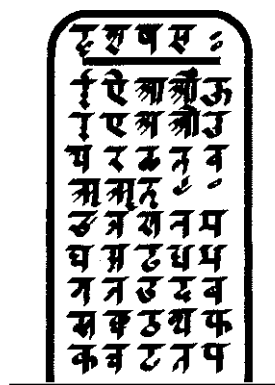 ह श ष स ः
ई ऐ आ औ ऊ
इ ए अ ओ उ
य र ळ ल व
ङ ञ ण न म
घ झ ढ ध भ
ग ज ड द ब
ख छ ठ थ फ
क च ट त प